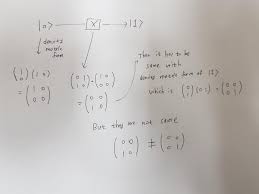 |0> → X → |1>
denote
matrix
form
(1 0) (1 0)
= (1 0 0 0)
(0 1 1 0) · (1 0 0 0)
= (0 0 1 0)
Then it has to be
same with
matrix form of |1>
which is (0 1) (0 1) = (0 0 0 1)
But they are not same
(0 0 1 0) ≠ (0 0 0 1)